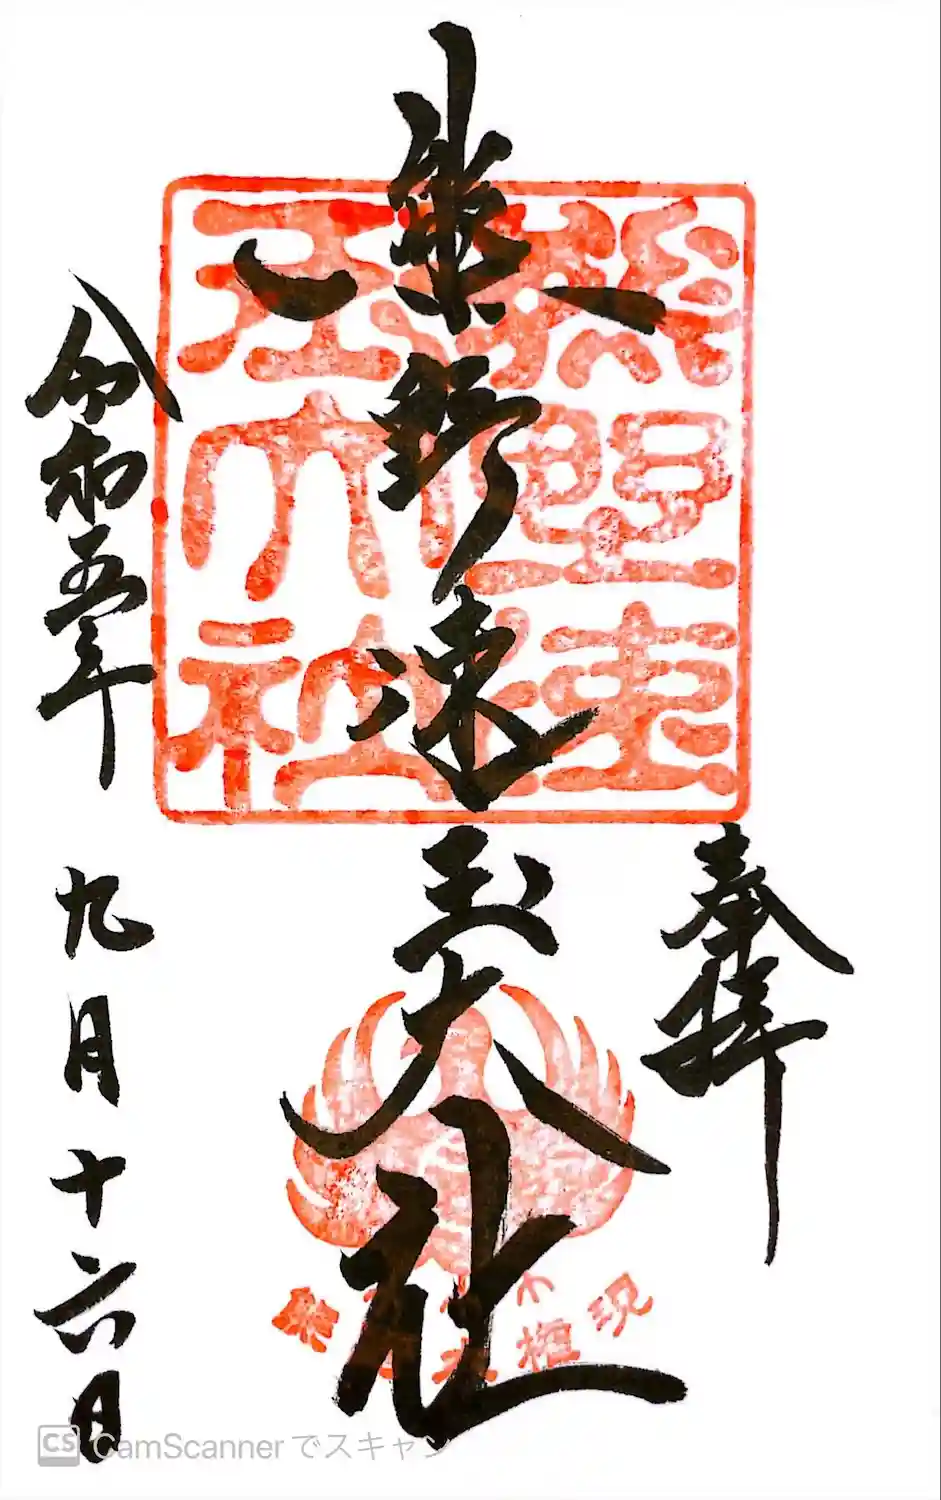 奉拝
熊野速玉大社
熊野速
玉大社
令和五年 九月十六日
CS CamScanner でスキャン